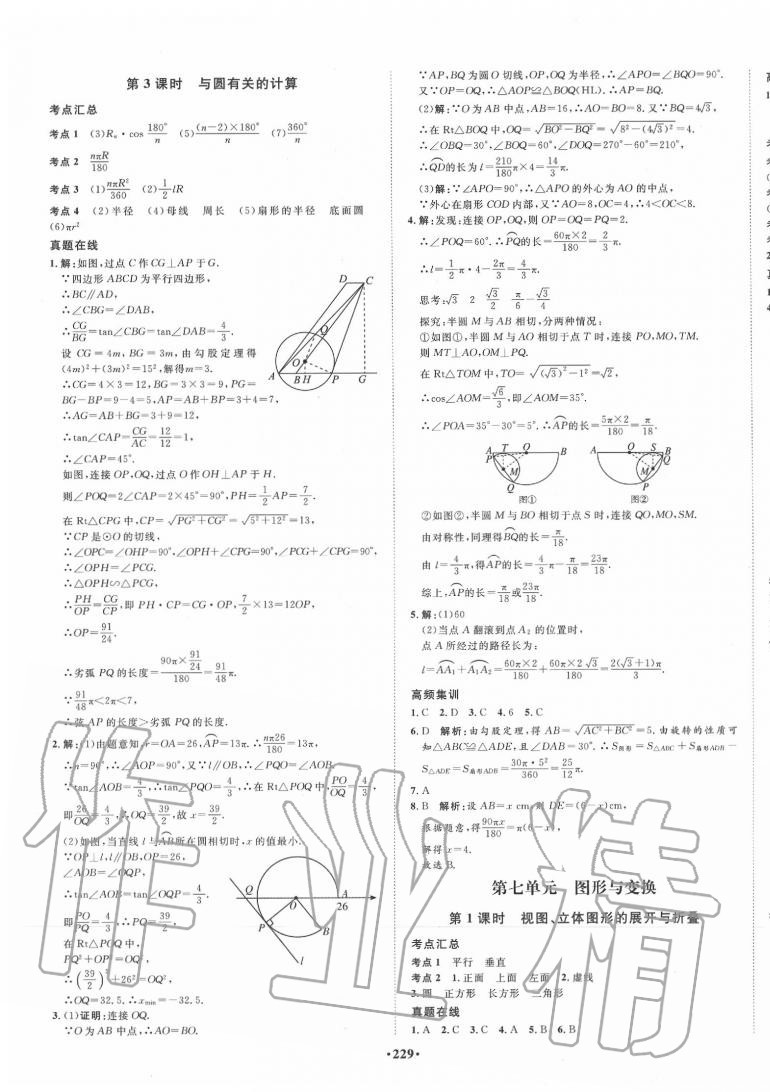 第3课时 与圆有关的计算
考点汇总
考点1 (3)Rₙ·cos 180°/n (5)(n-2)×180°/n (7)360°/n
考点2 nπR/180
考点3 (1)nπR²/360 (2)1/2 lR
考点4 (2)半径 (4)母线 周长 (5)扇形的半径 底面圆
(6)πr²
真题在线
1.解:如图,过点C作CG⊥AP于G.
∵四边形ABCD为平行四边形,
∴BC∥AD,
∴∠CBG=∠DAB,
∴CG/BG=tan∠CBG=tan∠DAB=4/3.
设CG=4m,BG=3m,由勾股定理得
(4m)²+(3m)²=15²,解得m=3.
∴CG=4×3=12,BG=3×3=9,PG=
BG-BP=9-4=5,AP=AB+BP=3+4=7,
∴AG=AB+BG=3+9=12,
∴tan∠CAP=CG/AC=12/12=1,
∴∠CAP=45°.
D C Q O A B H P G
如图,连接OP,OQ,过点O作OH⊥AP于H.
则∠POQ=2∠CAP=2×45°=90°,PH=1/2 AP=7/2.
在Rt△CPG中,CP=√(PG²+CG²)=√(5²+12²)=13.
∵CP是⊙O的切线,
∴∠OPC=∠OHP=90°,∠OPH+∠CPG=90°,∠PCG+∠CPG=90°,
∴∠OPH=∠PCG.
∴△OPH∽△PCG,
∴PH/OP=CG/CP,即PH·CP=CG·OP,7/2×13=12OP,
∴OP=91/24.
∴劣弧PQ的长度=(90π×91/24)/180=91/48 π.
∵91/48 π<2π<7,
∴弦AP的长度>劣弧PQ的长度.
2.解:(1)由题意知,r=OA=26,⌒AP=13π.∴nπ26/180=13π,
∴n=90°,∴∠AOP=90°,又∵l∥OB,∴∠PQO=∠AOB.
∵tan∠AOB=4/3,∴tan∠PQO=4/3,∴在Rt△POQ中,PO/OQ=4/3,
即26/OQ=4/3,∴OQ=39/2,故x=39/2.
(2)如图,当直线l与⌒AB所在圆相切时,x的值最小.
∵OP⊥l,l∥OB,OP=26,
∠AOB=∠OQP,
∴tan∠AOB=tan∠OQP=4/3,
即PO/PQ=4/3,∴PQ=39/2,
在Rt△POQ中,
PQ²+OP²=OQ²,
∴(39/2)²+26²=OQ²,
∴OQ=32.5.∴xmin=-32.5.
Q O A 26 P B l
3.(1)证明:连接OQ.
∵O为AB中点,∴AO=BO.
∵AP,BQ为圆O切线,OP,OQ为半径,∴∠APO=∠BQO=90°.
又∵OP=OQ,∴△AOP≌△BOQ(HL).∴AP=BQ.
(2)解:∵O为AB中点,AB=16,∴AO=BO=8.又∵BQ=4√3,
∴在Rt△BOQ中,OQ=√(BO²-BQ²)=√(8²-(4√3)²)=4.
∴∠OBQ=30°,∠BOQ=60°,∠DOQ=270°-60°=210°,
∴⌒QD的长为l=210/180 π×4=14/3 π.
(3)解:∵∠APO=90°,∴△APO的外心为AO的中点,
∵外心在扇形COD内部,又∵AO=8,OC=4,∴4<OC<8.
4.解:发现:连接OP,OQ,则OP=OQ=PQ=2.
∴∠POQ=60°.∴⌒PQ的长=60π×2/180=2/3 π.
∴l=1/2 π·4-2π/3=4/3 π.
思考:√3 2 √3/2 π/6-√3/4
探究:半圆M与AB相切,分两种情况:
①如图①,半圆M与AO相切于点T时,连接PO,MO,TM.
则MT⊥AO,OM⊥PQ.
在Rt△TOM中,TO=√((√3)²-1²)=√2,
∴cos∠AOM=√6/3,即∠AOM=35°.
∴∠POA=35°-30°=5°.∴⌒AP的长=5π×2/180=π/18.
A T O B P M Q
图①
A O S B P M Q
图②
②如图②,半圆M与BO相切于点S时,连接QO,MO,SM.
由对称性,同理得⌒BQ的长=π/18.
由l=4/3 π,得⌒AP的长=4/3 π-π/18=23π/18.
综上,⌒AP的长=π/18或23π/18.
5.解:(1)60
(2)当点A翻滚到点A₂的位置时,
点A所经过的路径长为:
l=⌒AA₁+⌒A₁A₂=60π×2/180+60π×2√3/180=2(√3+1)π/3.
高频集训
1.C 2.D 3.C 4.6 5.C
6.D 解析:由勾股定理,得AB=√(AC²+BC²)=5.由旋转的性质可
知△ABC≌△ADE,且∠DAB=30°.∴S图形=S△ABC+S扇形ADB-
S△ADE=S扇形ADB=30π·5²/360=25π/12.
7.A
8.B 解析:设AB=x cm,则DE=(6-x)cm,
根据题意,得90πx/180=π(6-x),
解得x=4.
故选B.
第七单元 图形与变换
第1课时 视图、立体图形的展开与折叠
考点汇总
考点1 平行 垂直
考点2 1.正面 上面 左面 2.虚线
3.圆 正方形 长方形 三角形
真题在线
1.A 2.C 3.C 4.A 5.B 6.B
·229·
作业精